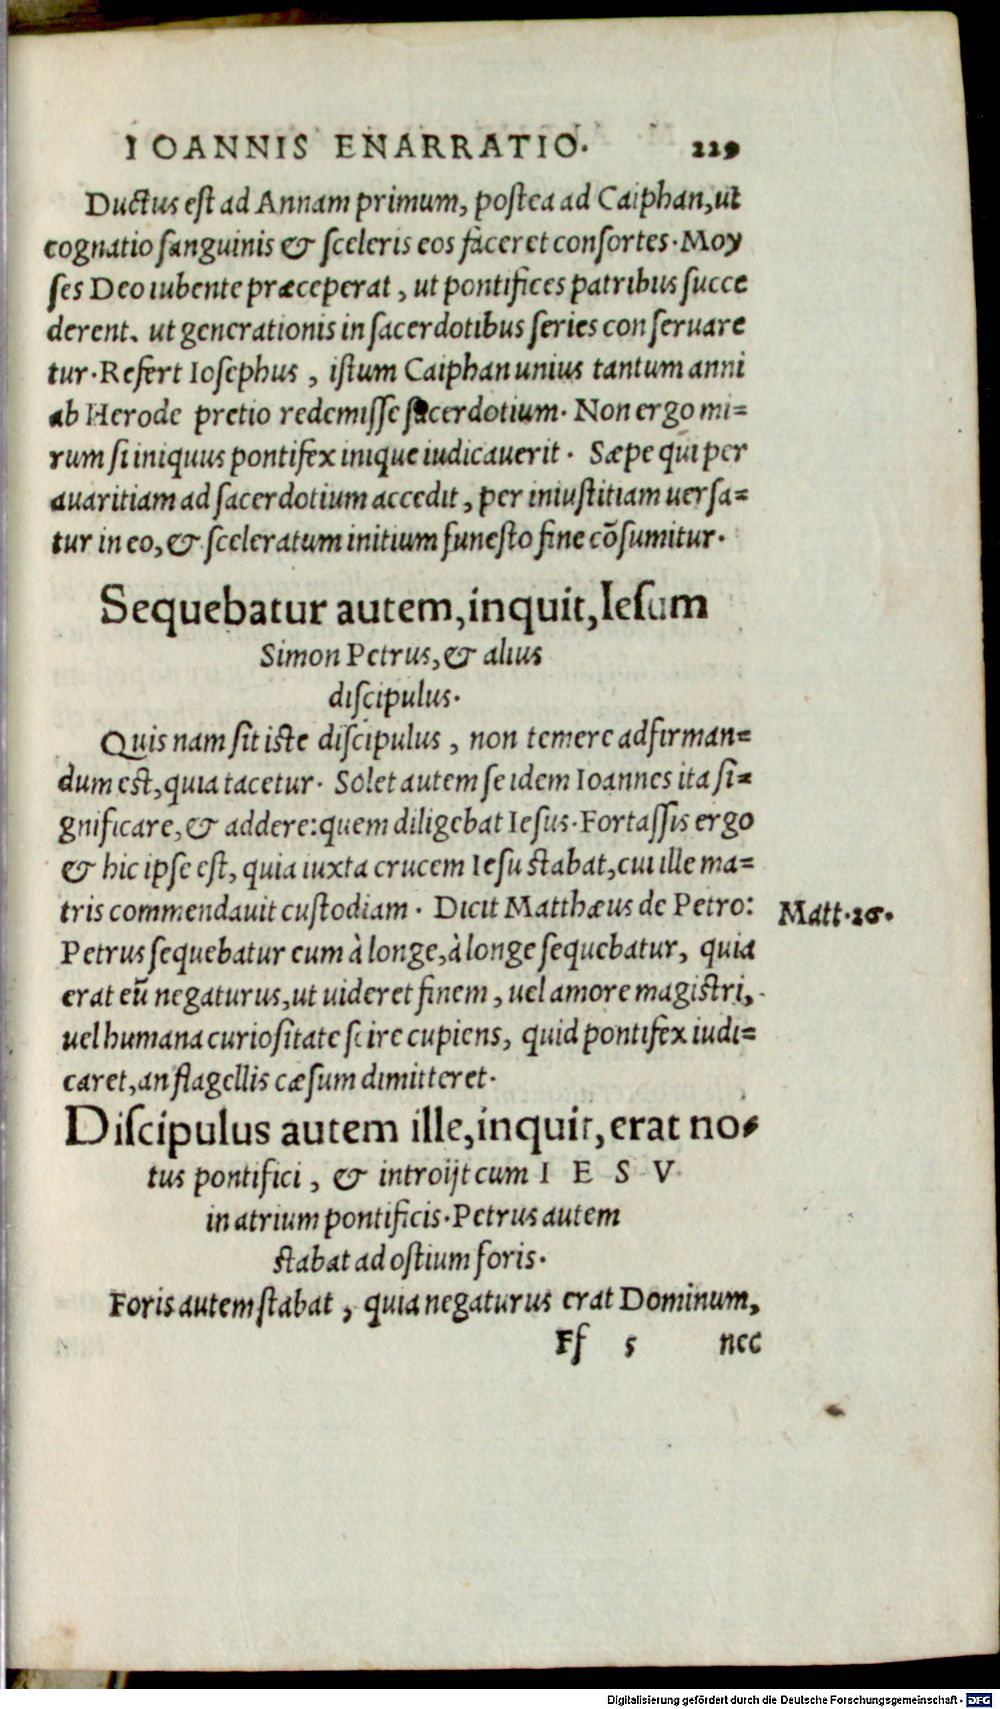 IOANNIS ENARRATIO. 229
Ductus est ad Annam primum, postea ad Caiphan, ut
cognatio sanguinis & sceleris eos faceret consortes. Moy
ses Deo iubente præceperat, ut pontifices patribus succe
derent. ut generationis in sacerdotibus series conseruare
tur. Refert Iosephus, istum Caiphan unius tantum anni
ab Herode pretio redemisse sacerdotium. Non ergo mi=
rum si iniquus pontifex inique iudicauerit. Sæpe qui per
auaritiam ad sacerdotium accedit, per iniustitiam uersa=
tur in eo, & sceleratum initium funesto fine cõsumitur.
Sequebatur autem, inquit, Iesum
Simon Petrus, & alius
discipulus.
Quis nam sit iste discipulus, non temere adfirman=
dum est, quia tacetur. Solet autem se idem Ioannes ita si=
gnificare, & addere: quem diligebat Iesus. Fortassis ergo
& hic ipse est, quia iuxta crucem Iesu stabat, cui ille ma=
tris commendauit custodiam. Dicit Matthæus de Petro:
Matt. 26.
Petrus sequebatur eum à longe, à longe sequebatur, quia
erat eũ negaturus, ut uideret finem, uel amore magistri,
uel humana curiositate scire cupiens, quid pontifex iudi=
caret, an flagellis cæsum dimitteret.
Discipulus autem ille, inquit, erat no=
tus pontifici, & introijt cum I E S V
in atrium pontificis. Petrus autem
stabat ad ostium foris.
Foris autem stabat, quia negaturus erat Dominum,
Ff 5 nec
Digitalisierung gefördert durch die Deutsche Forschungsgemeinschaft - DFG